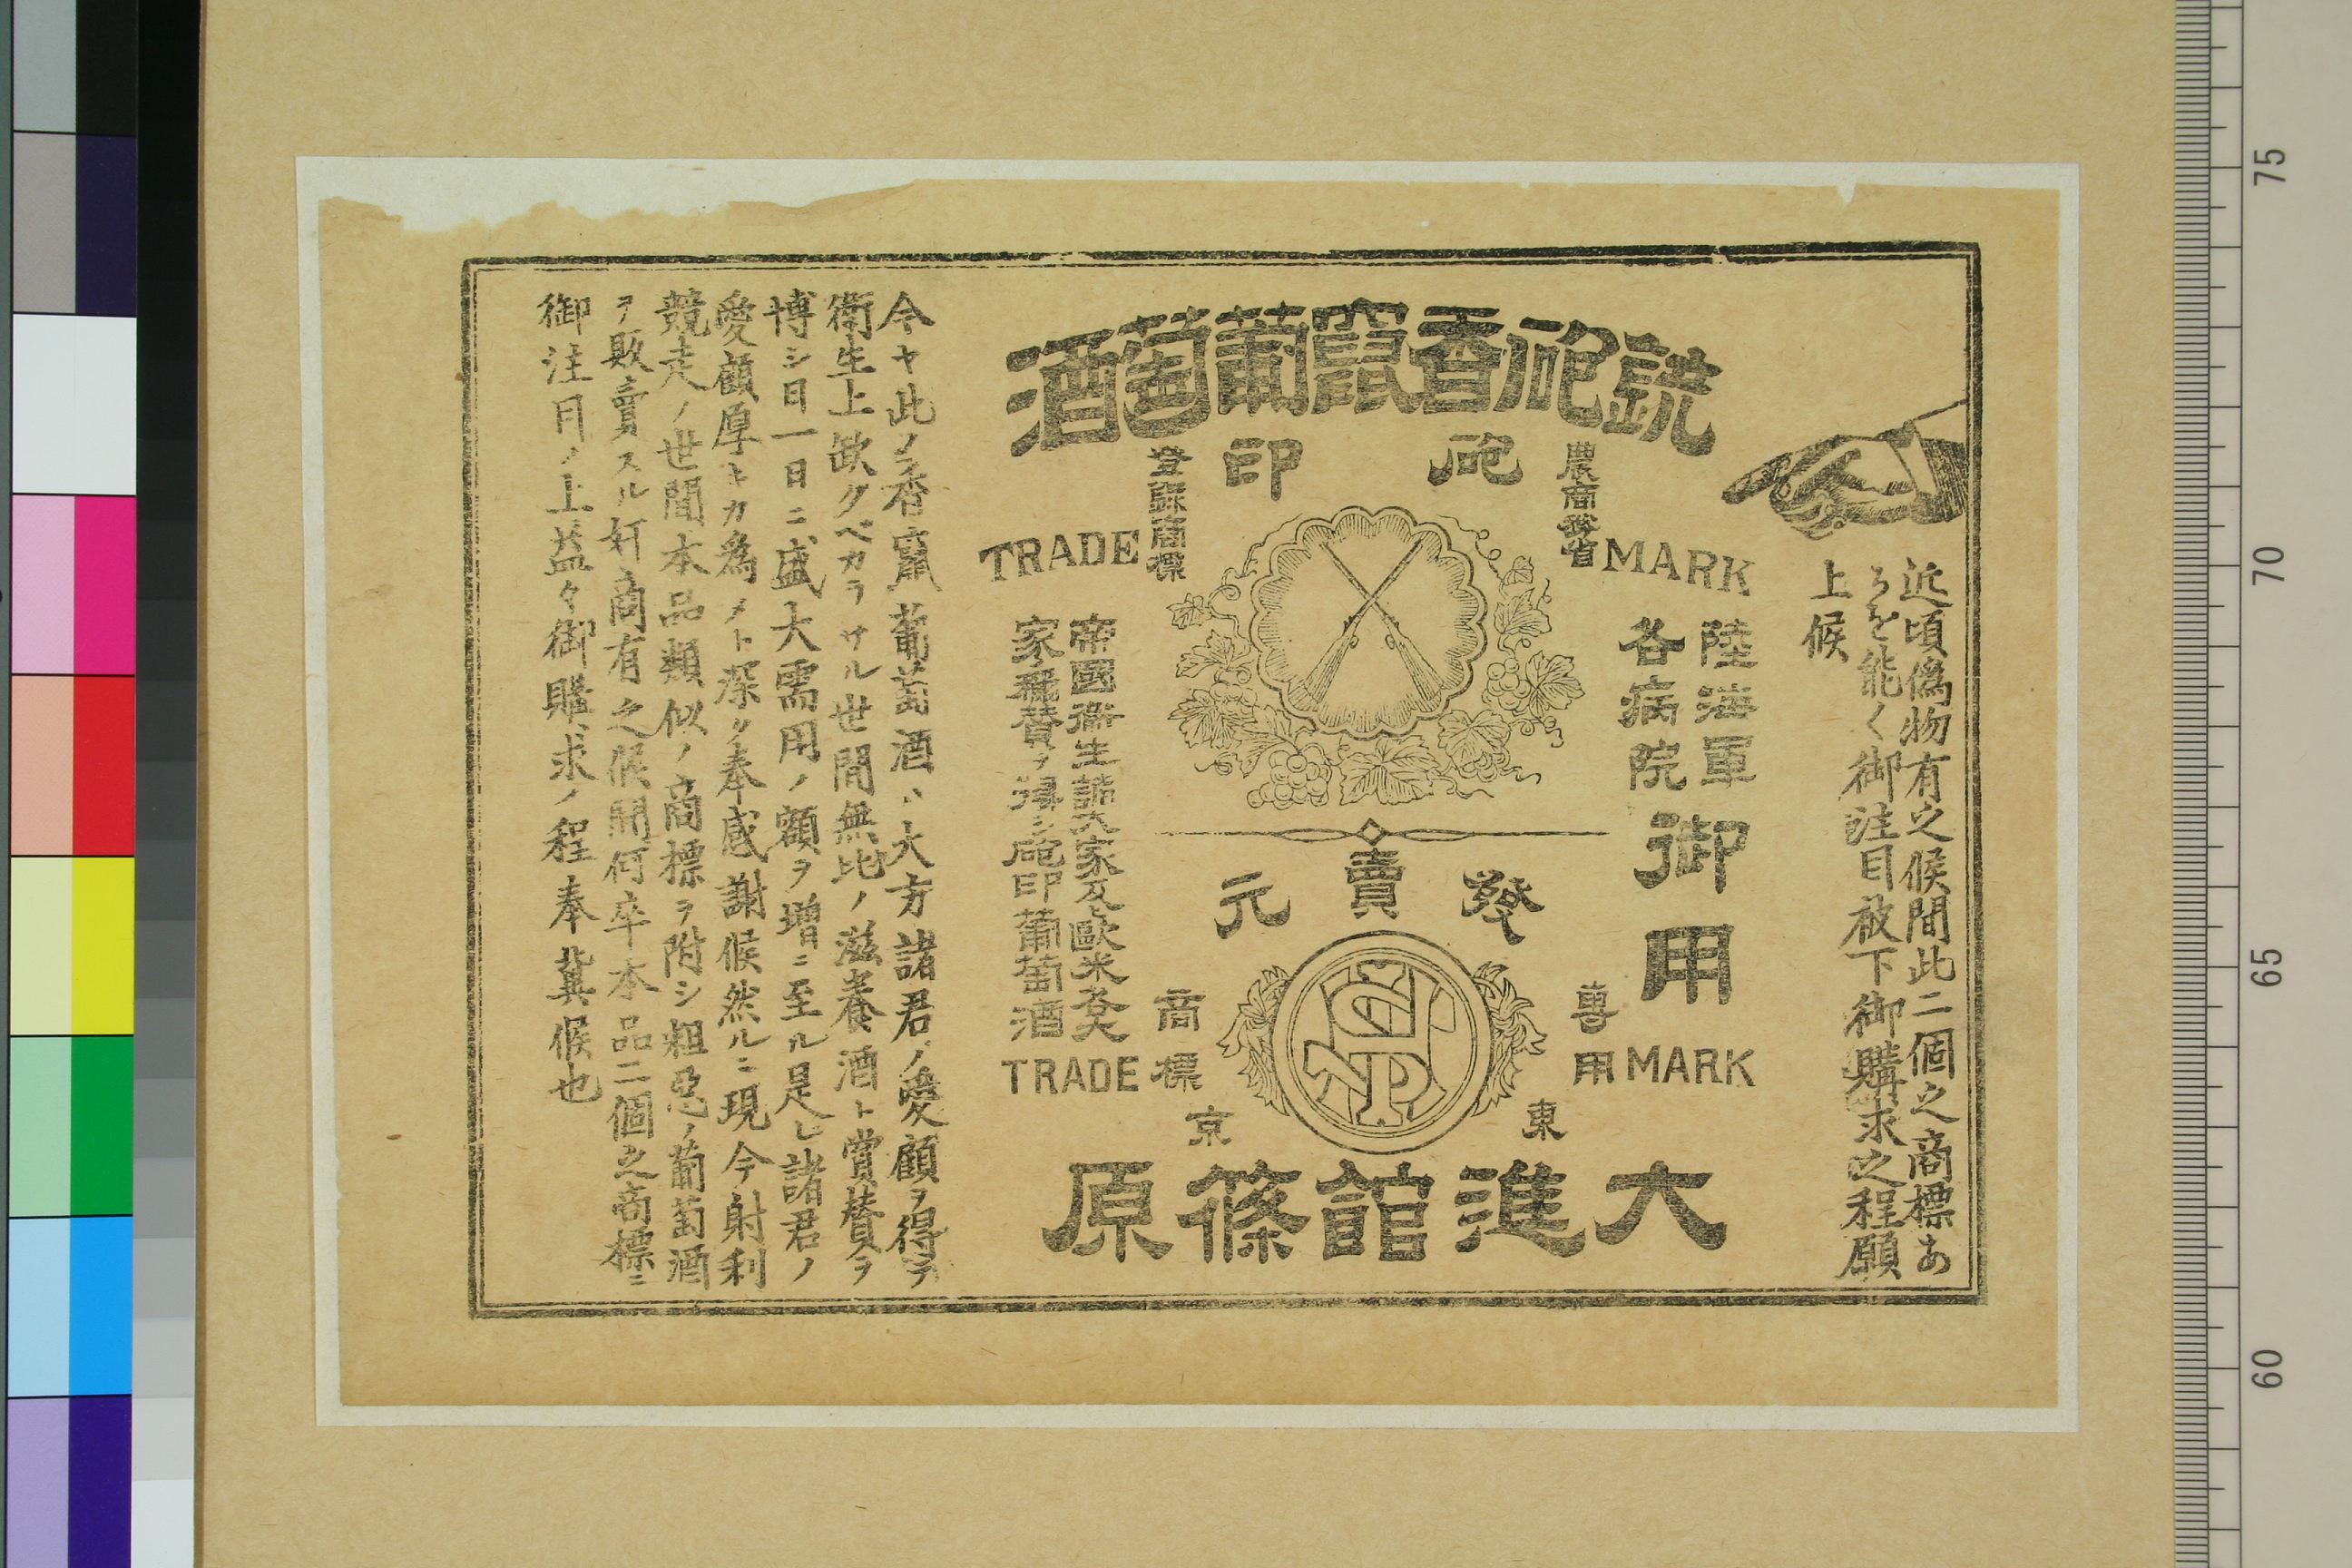 近頃偽物有之候間此二個之商標あ
るを能く御注目被下御購求之程願
上候
銃砲香竄葡萄酒
砲印
農商務省
登録商標
MARK
TRADE
陸海軍
各病院
御用
帝國衛生諸大家及歐米各大
家稱賛ヲ得シ砲印葡萄酒
發賣元
専用
商標
MARK
TRADE
東京
大進館篠原
今ヤ此ノ香竄葡萄酒ハ大方諸君ノ愛顧ヲ得テ
衛生上欲クベカラサル世間無比ノ滋養酒ト賞賛ヲ
博シ日一日ニ盛大需用ノ額ヲ増ニ至ル是レ諸君ノ
愛顧厚キカ為メト深ク奉感謝候然ルニ現今射利
競走ノ世間本品類似ノ商標ヲ附シ粗惡ノ葡萄酒
ヲ販賣スル奸商有之候間何卒本品二個之商標ニ
御注目ノ上益々御購求ノ程奉冀候也
75
70
65
60